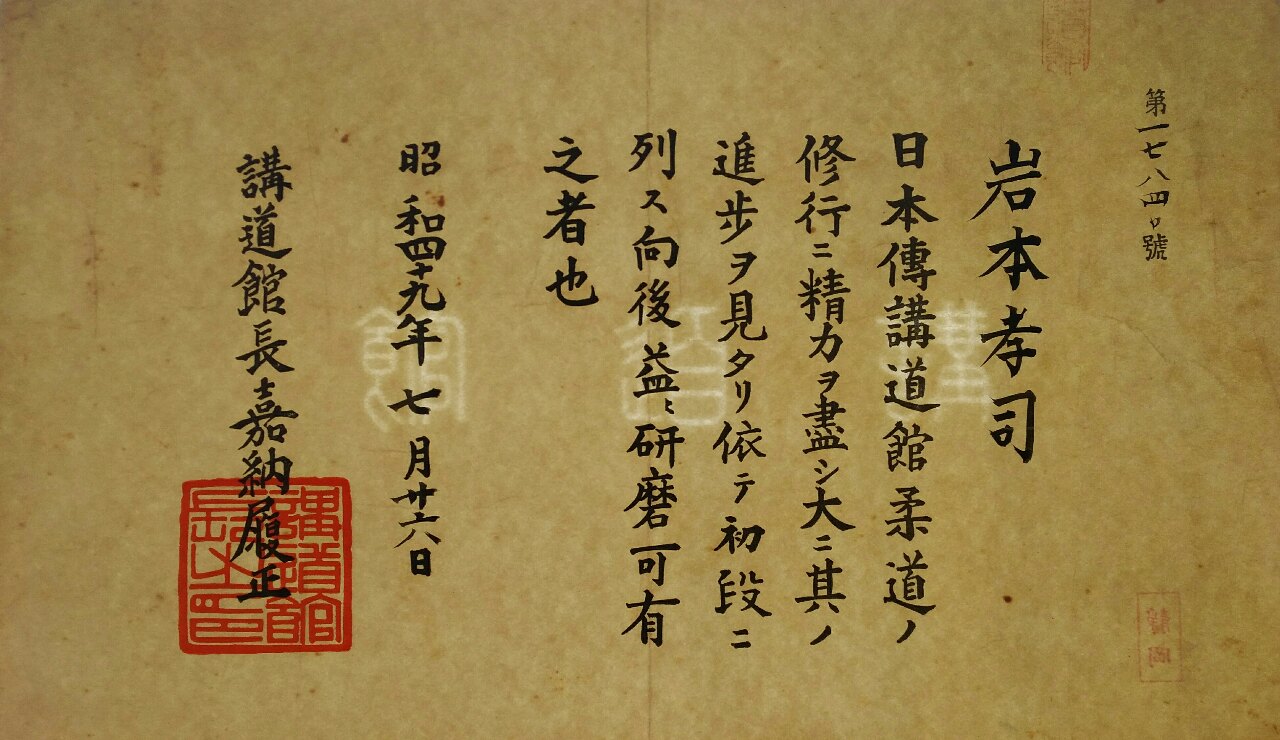 第一七八四口號
岩本孝司
日本傳講道館柔道ノ
修行ニ精力ヲ盡シ大ニ其ノ
進歩ヲ見タリ依テ初段ニ
列ス向後益〻研磨可有
之者也
昭和四十九年七月廿六日
講道館長嘉納履正
講道館
講道館
長之印